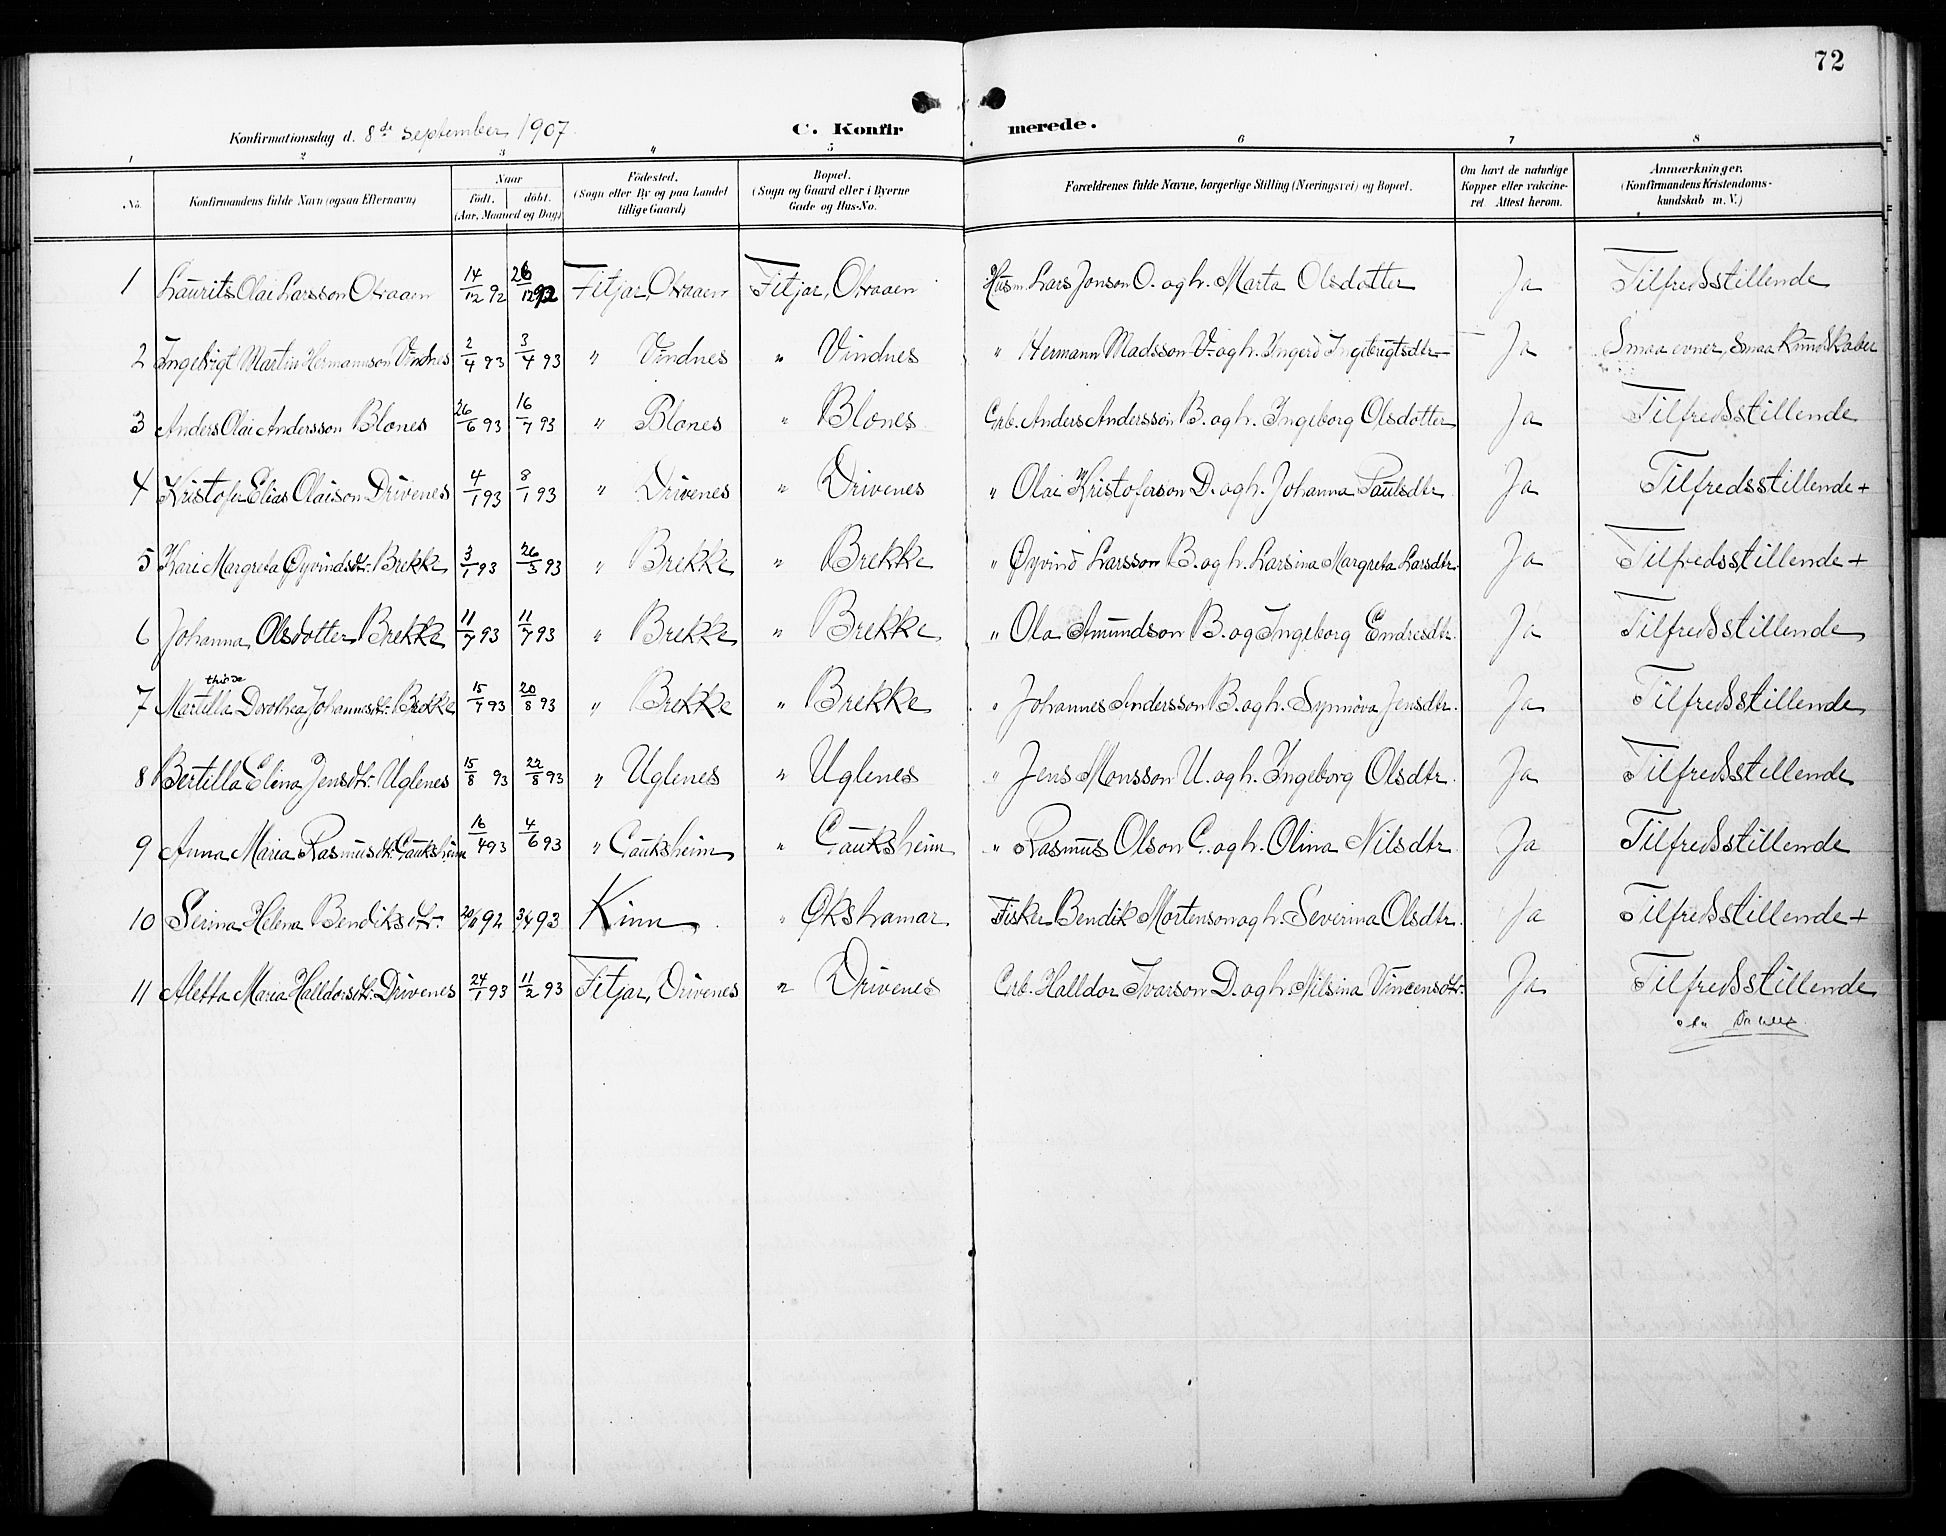 72
Konfirmationsdag d. 8de September 1907. C. Konfirmerede.
1 2 3 4 5 6 7 8
No. Konfirmandens fulde Navn (ogsaa Efternavn) Naar født. døbt. (Aar, Maaned og Dag) Fødested. (Sogn eller By og paa Landet tillige Gaard) Bopæl. (Sogn og Gaard eller i Byerne Gade og Hus-No. Forældrenes fulde Navne, borgerlige Stilling (Næringsvei) og Bopæl. Om havt de naturlige Kopper eller vakcineret Attest herom. Anmærkninger. (Konfirmandens Kristendomskundskab m. V.)
1 Laurits Olai Larsson 14/12 92 26/12 92 Fitjar, Fitjar, Husm. Lars Jonson O. og h. Marta Olsdotter Ja Tilfredsstillende
2 Ingebrigt Martin Hermannson Vindnes 2/4 93 3/4 93 " Vindnes " Vindnes " Hermann Madsson V. og h. Ingerd Ingebrigtsdtr. Ja Smaa evner, smaa kundskaber
3 Anders Olai Andersson Blønes 26/6 93 16/7 93 " Blønes " Blønes Grb. Anders Andersson B. og h. Ingeborg Olsdotter Ja Tilfredsstillende
4 Kristofer Elias Olaison Drivenes 4/1 93 8/1 93 " Drivenes " Drivenes " Olai Kristoferson D. og h. Johanna Paulsdtr Ja Tilfredsstillende +
5 Kari Margreta Øyvindsdtr. Brekke 3/1 93 26/3 93 " Brekke " Brekke " Øyvind Larsson B. og h. Larsina Margreta Larsdtr. Ja Tilfredsstillende +
6 Johanna Olsdotter Brekke 11/7 93 11/7 93 " Brekke " Brekke " Ola Amundson B. og Ingeborg Endresdtr. Ja Tilfredsstillende
7 Dorothea Johannesdtr. Brekke 15/7 93 20/8 93 " Brekke " Brekke " Johannes Andersson B. og h. Synnøva Jensdtr. Ja Tilfredsstillende
8 Bertilla Elina Jensdtr. Uglenes 15/8 93 22/8 93 " Uglenes " Uglenes " Jens Monsson U. og h. Ingeborg Olsdtr. Ja Tilfredsstillende
9 Anna Maria Rasmusdtr. Gauksheim 16/4 93 4/6 93 " Gauksheim " Gauksheim " Rasmus Olson G. og h. Olina Nilsdtr. Ja Tilfredsstillende
10 Serina Helena Bendiksdtr. 92 93 Kinn " Økshamar Fisker Bendik Mortenson og h. Severina Olsdtr. Ja Tilfredsstillende +
11 Aletta Maria Halldorsdtr. Drivenes 24/1 93 11/2 93 Fitjar, Drivenes " Drivenes Grb. Halldor Ivarson D. og h. Nilsina Vincensdtr. Ja Tilfredsstillende